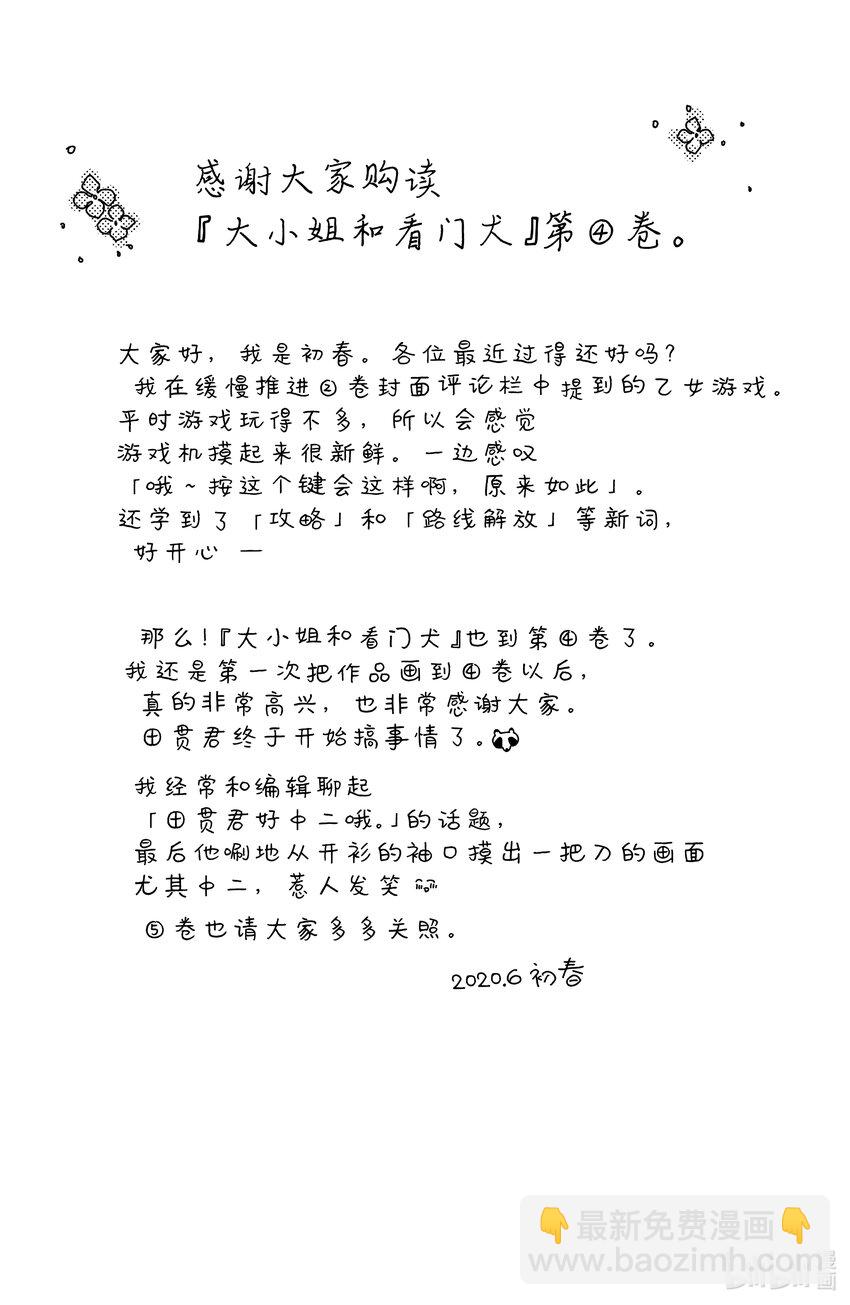 感谢大家购读
『大小姐和看门犬』第④卷。
大家好，我是初春。各位最近过得还好吗？
我在缓慢推进②卷封面评论栏中提到的乙女游戏。
平时游戏玩得不多，所以会感觉
游戏机摸起来很新鲜。一边感叹
「哦～按这个键会这样啊，原来如此」。
还学到了「攻略」和「路线解放」等新词，
好开心 —
那么！『大小姐和看门犬』也到第④卷了。
我还是第一次把作品画到④卷以后，
真的非常高兴，也非常感谢大家。
田贯君终于开始搞事情了。
我经常和编辑聊起
「田贯君好中二哦。」的话题，
最后他唰地从开衫的袖口摸出一把刀的画面
尤其中二，惹人发笑
⑤卷也请大家多多关照。
2020.6 初春
👇最新免费漫画👇
www.baozimh.com